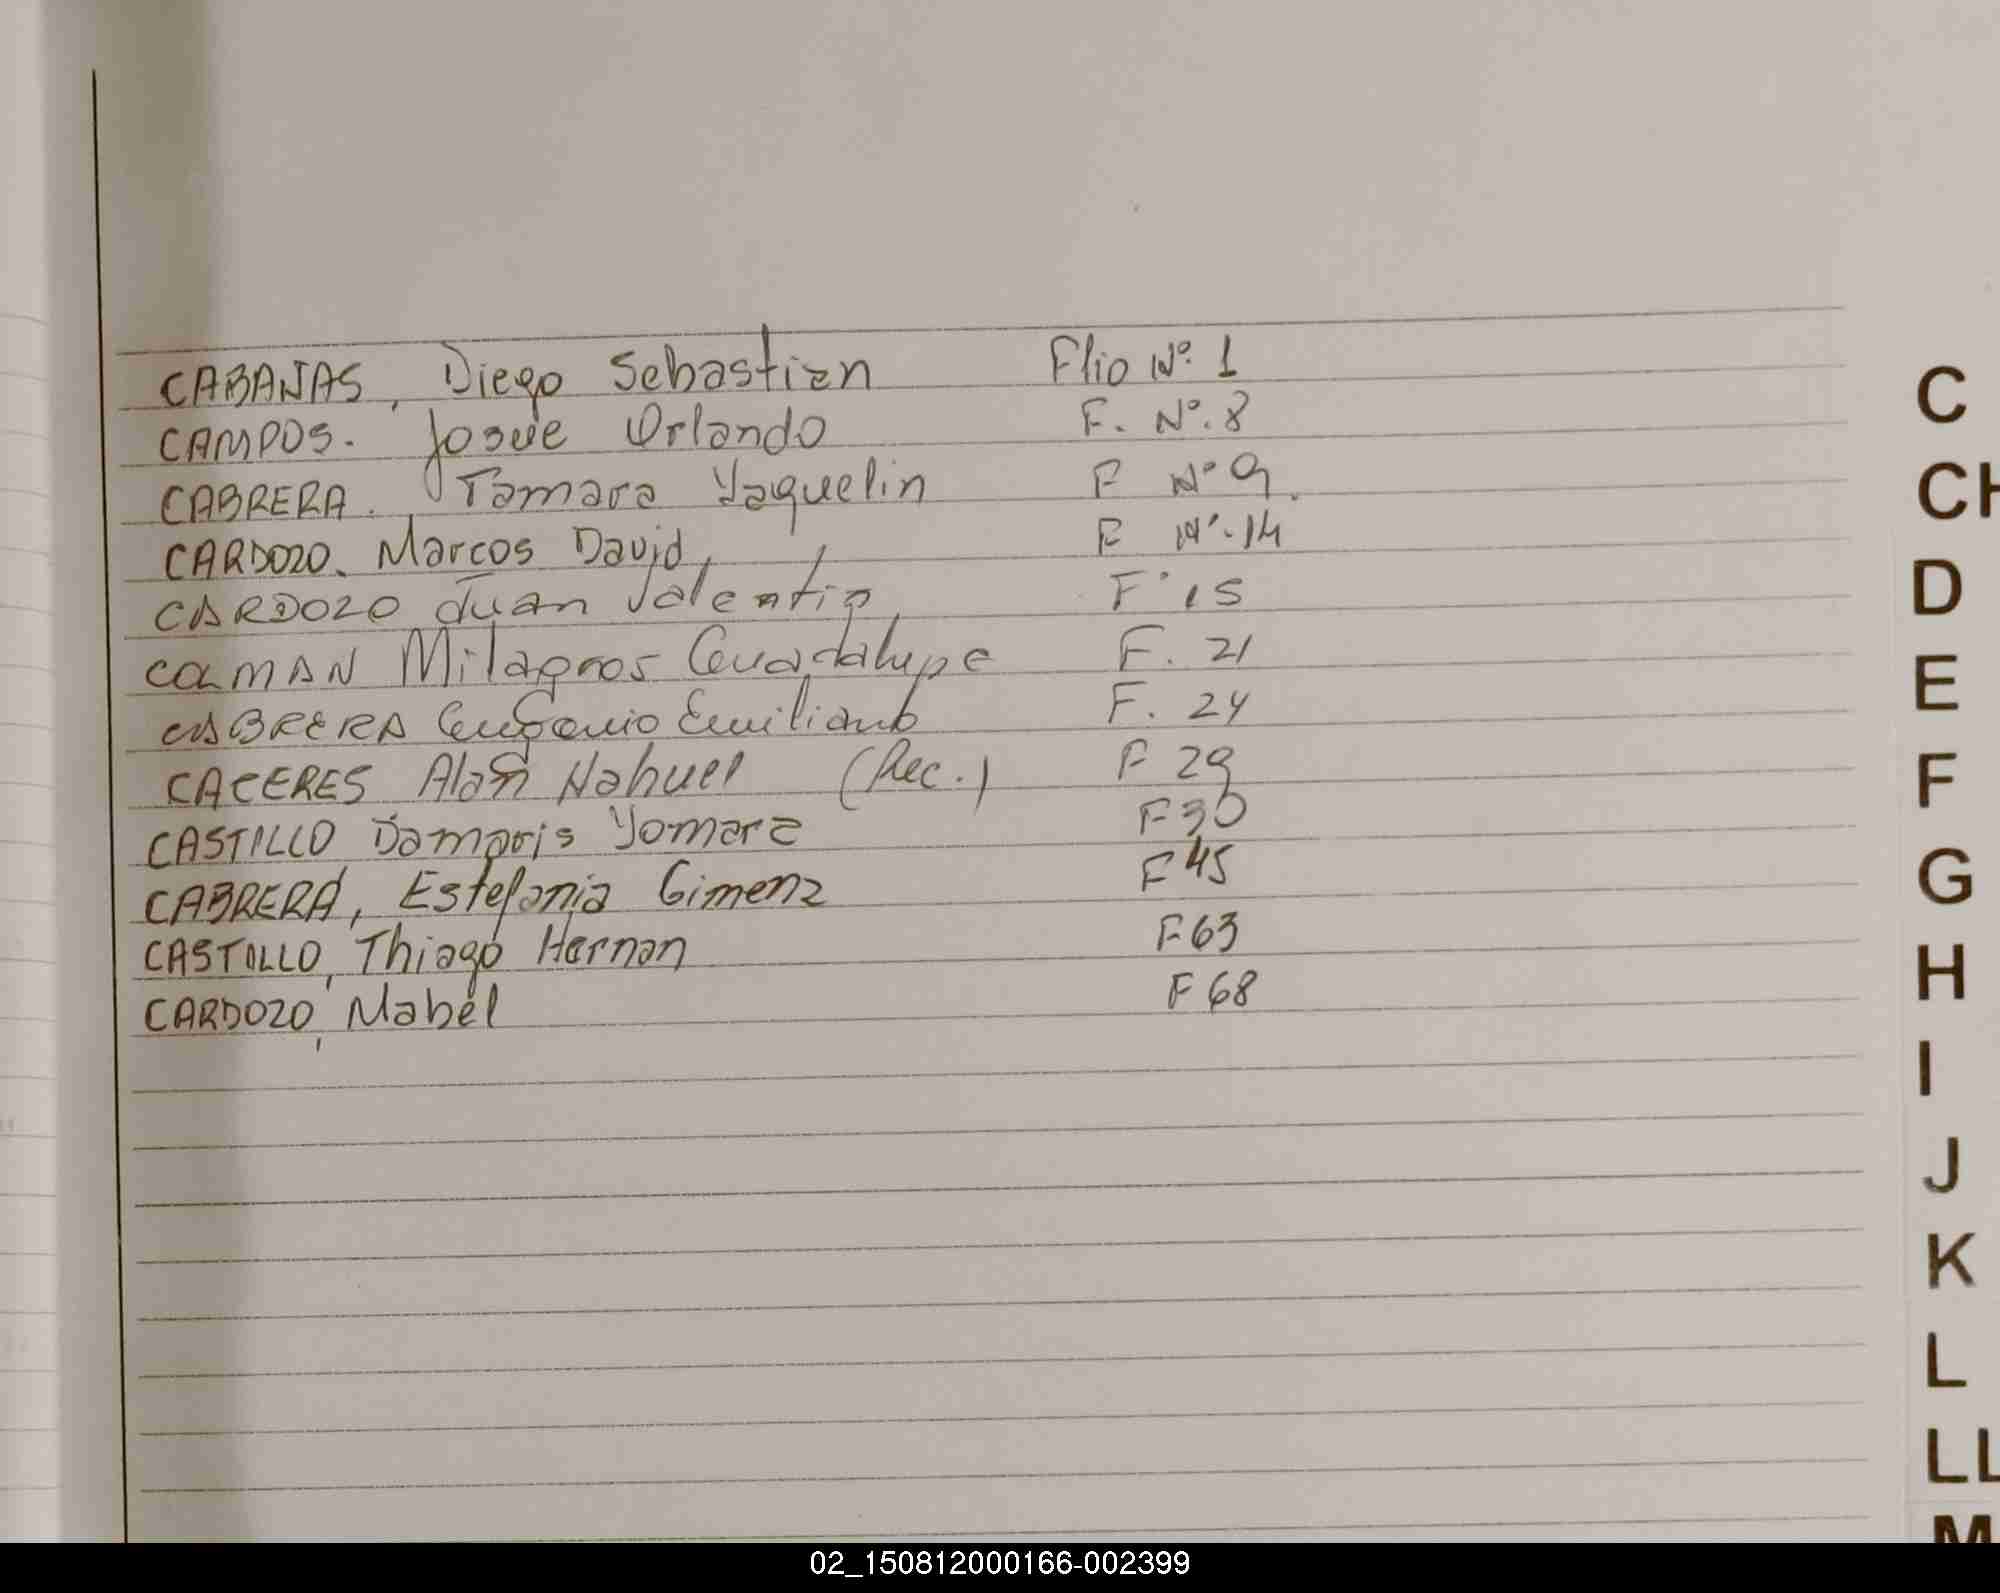 CABAÑAS, Diego Sebastian Flio Nº. 1
CAMPOS. Josue Orlando F. Nº. 8
CABRERA. Tamara Yaquelin F Nº 9.
CARDOZO, Marcos David, F Nº. 14
CARDOZO Juan Valentin F. 15
COLMAN Milagros Guadalupe F. 21
CABRERA Eugenio Emiliano F. 24
CACERES Alan Nahuel (Rec.) F 29
CASTILLO Damaris Yomara F 30
CABRERA, Estefania Gimena F 45
CASTILLO, Thiago Hernan F 63
CARDOZO, Mabel F 68
C
CH
D
E
F
G
H
I
J
K
L
LL
M
02_150812000166-002399